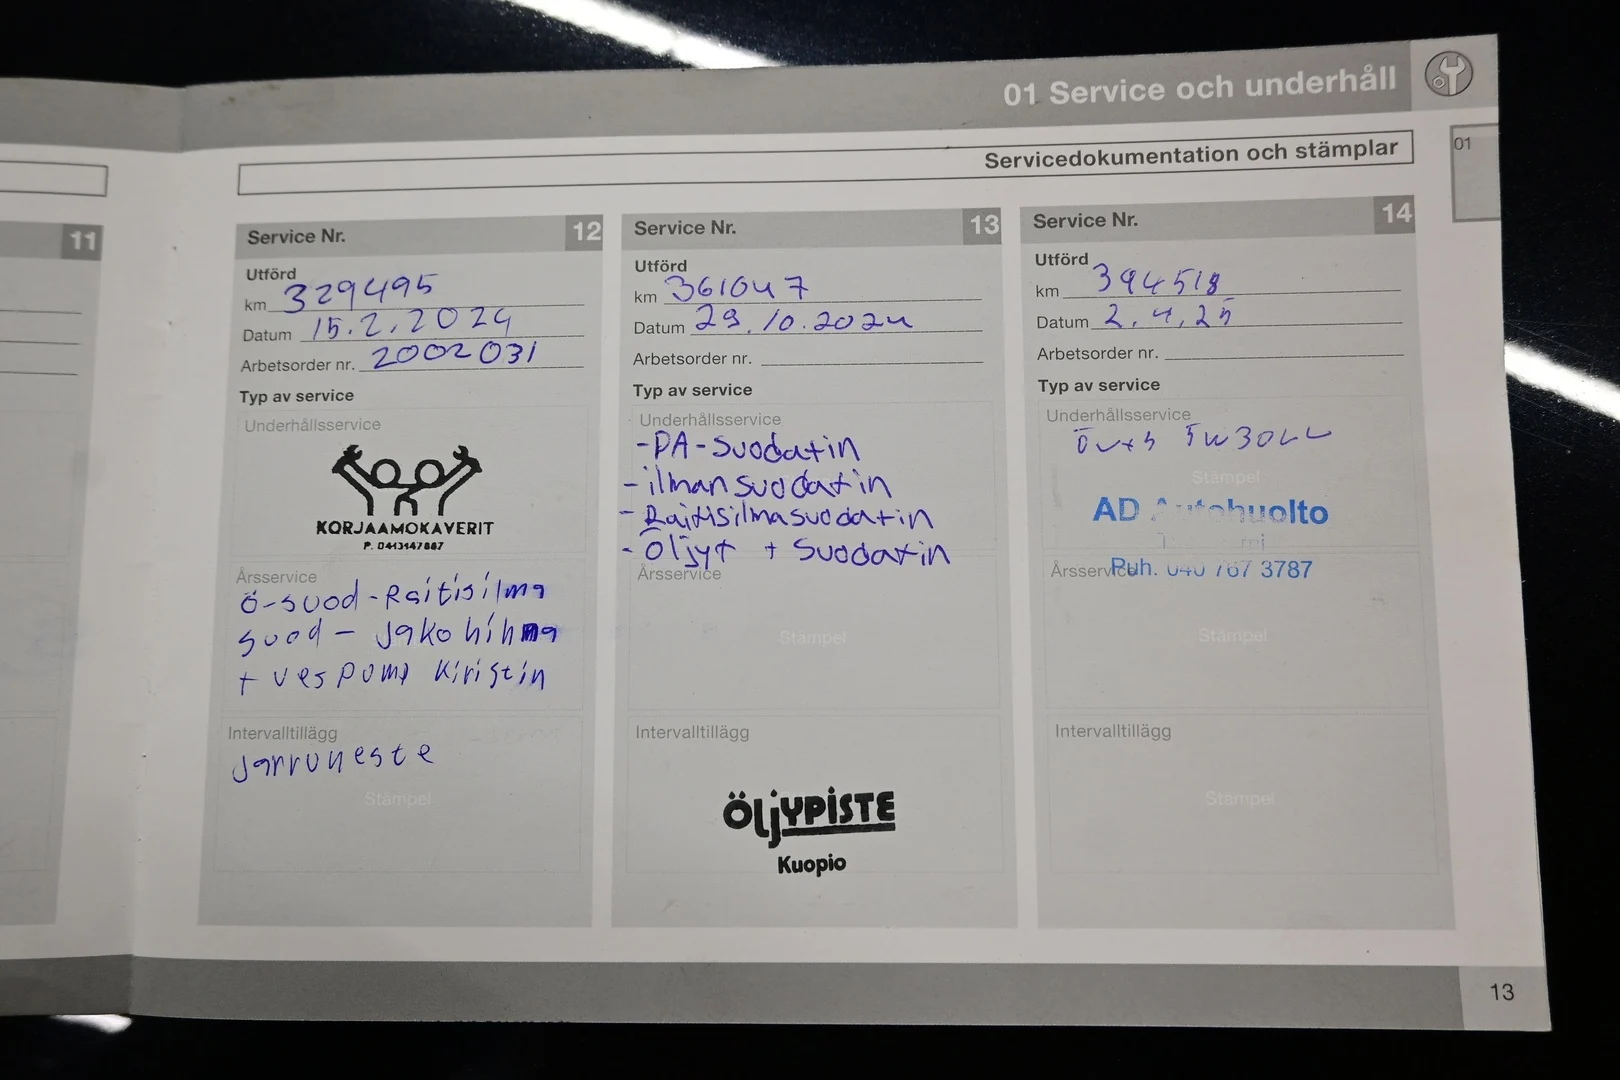 01 Service och underhåll
01
Servicedokumentation och stämplar
11
Service Nr. 12
Utförd
km 329495
Datum 15.2.2024
Arbetsorder nr. 2002031
Typ av service
Underhållsservice
KORJAAMOKAVERIT
P. 0413147887
Årsservice
Ö-suod - Raitisilma
suod - Jakohihna
+ vespump kiristin
Intervalltillägg
Jarruneste
Stämpel
Service Nr. 13
Utförd
km 361047
Datum 29.10.2024
Arbetsorder nr.
Typ av service
Underhållsservice
-PA-Suodatin
-ilmansuodatin
-Raitisilmasuodatin
-Öljyt + Suodatin
Årsservice
Stämpel
Intervalltillägg
ÖljYPiSTE
Kuopio
Service Nr. 14
Utförd
km 394518
Datum 2.4.25
Arbetsorder nr.
Typ av service
Underhållsservice
Stämpel
AD Autohuolto
Årsservice
Puh. 040 767 3787
Stämpel
Intervalltillägg
Stämpel
13